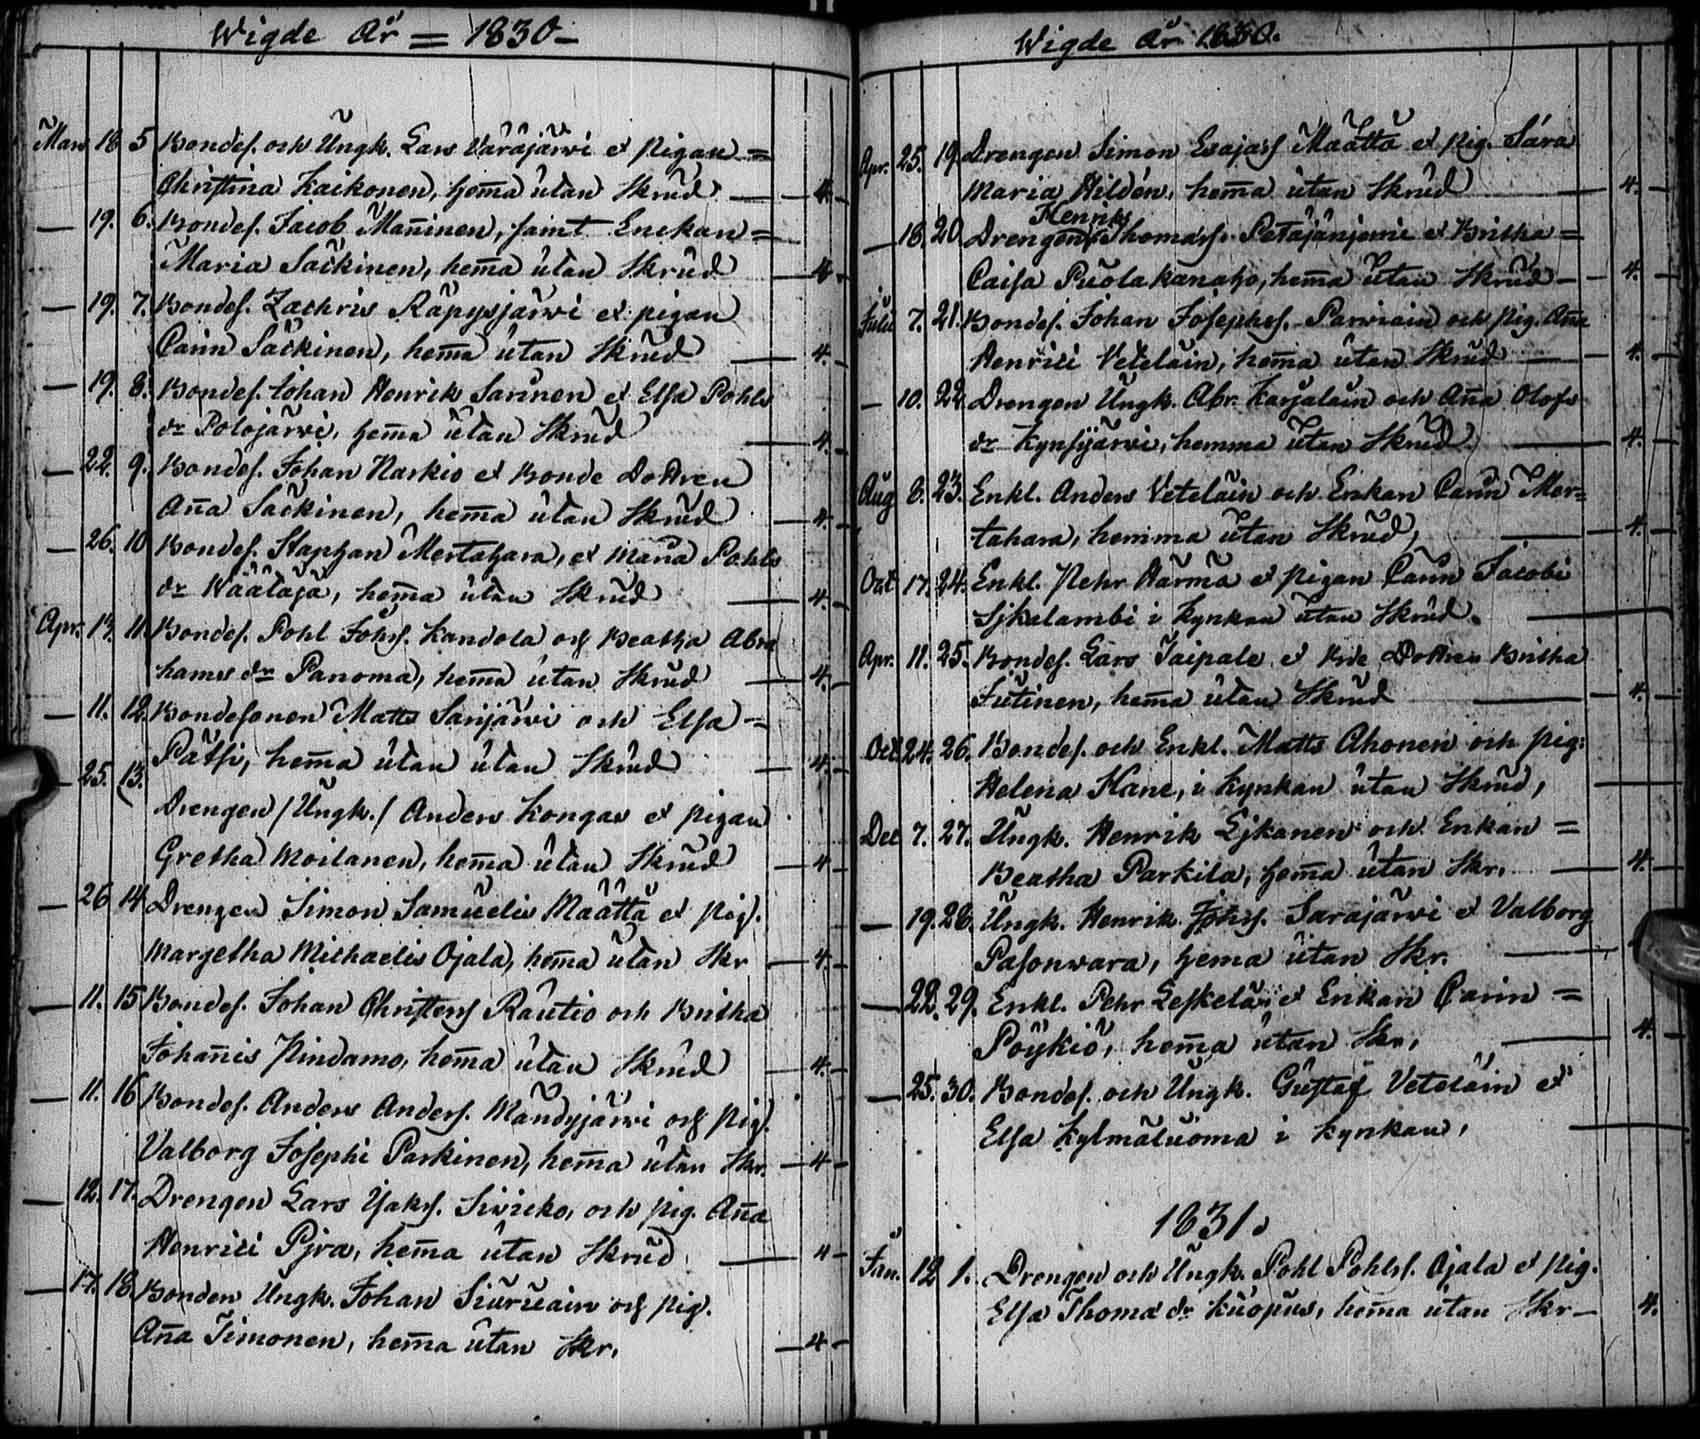 Wigde År = 1830 –
Mars 18 5 Bondes. och Ungk. Lars Väräjärwi et pigan =
Christina Kaikonen, hem̄a utan Skrud — 4.
— 19. 6. Bondes. Jacob Man̄inen, samt Enckan =
Maria Säckinen, hem̄a utan Skrud — 4.
— 19. 7. Bondes. Zachris Räpysjärwi et pigan
Carin Säckinen, hem̄a utan Skrud — 4.
— 19. 8. Bondes. Johan Henrik Sarinen et Elsa Pohls
dr Polojärwi, hem̄a utan Skrud — 4.
— 22. 9. Bondes. Johan Karkio et Bonde Dottren
An̄a Säckinen, hem̄a utan Skrud — 4.
— 26. 10 Bondes. Staphan Mertahara, et Maria Pohls
dr Wäätäjä, hem̄a utan Skrud — 4.
Apr. 13. 11. Bondes. Pohl Johs. Kandola och Beatha Abra
hams dr Panoma, hem̄a utan Skrud — 4.
— 11. 12. Bondesonen Matts Sarijärwi och Elsa =
Pätsi, hem̄a utan utan Skrud — 4.
— 25. 13. Drengen / Ungk. / Anders Kongas et pigan
Gretha Moilanen, hem̄a utan Skrud — 4
— 26 14 Drengen Simon Samuelis Määttä et pig.
Margetha Michaelis Ojala, hem̄a utan Skr — 4.
— 11. 15 Bondes. Johan Christers Rautio och Britha
Johan̄is Pindamo, hem̄a utan Skrud — 4.
— 11. 16 Bondes. Anders Anders. Mändyjärwi och pig.
Valborg Josephi Parkinen, hem̄a utan Skr. — 4 –
— 12. 17. Drengen Lars Isaks. Siwicko, och pig. An̄a
Henrici Pjra, hem̄a utan Skrud — 4 –
— 17. 18. Bonden Ungk. Johan Siuruain och pig.
An̄a Timonen, hem̄a utan Skr. — 4 –
Wigde År 1830.
Apr. 25. 19. Drengen Simon Esajas Määttä et pig. Sara
Maria Hildén, hem̄a utan Skrud — 4. –
Henriks
— 18. 20 Drengen Thomass. Petäjänjemi et Britha =
Caisa Puolakanaho, hem̄a utan Skrud – 4. –
Julii 7. 21. Bondes. Johan Josephs. Parwiain och pig. An̄a
Henrici Veteläin, hem̄a utan Skrud — 4. –
— 10. 22. Drengen Ungk. Abr. Karjalain och An̄a Olofs
dr Kynsijärwi, hemma utan Skrud. — 4. –
Aug 8. 23. Enkl. Anders Veteläin och Enkan Carin Mer=
tahara, hemma utan Skrud, — 4. –
Oct 17. 24. Enkl. Pehr Härmä et pigan Carin Jacobi
Sjkalambi i Kyrkan utan Skrud. —
Apr. 11. 25. Bondes. Lars Taipale et Bde Dottren Britha
Jutinen, hem̄a utan Skrud — 4. –
Oct 24. 26. Bondes. och Enkl. Matts Ahonen och pig:
Helena Kane, i Kyrkan utan Skrud, —
Dec 7. 27. Ungk. Henrik Lykanen och Enkan =
Beatha Parkila, hem̄a utan Skr. — 4. –
— 19. 28. Ungk. Henrik Johss. Sarajärwi et Valborg
Pasonwara, hema utan Skr. —
— 22. 29. Enkl. Pehr Leskeläin et Enkan Carin =
Pöykiö, hem̄a utan Skr. — 4. –
— 25. 30. Bondes. och Ungk. Gustaf Veteläin et
Elsa Kylmäluoma i Kyrkan, —
1831.
Jan. 12 1. Drengen och Ungk. Pohl Pohls. Ojala et pig.
Elsa Thoma dr Kuopus, hem̄a utan Skr – 4.